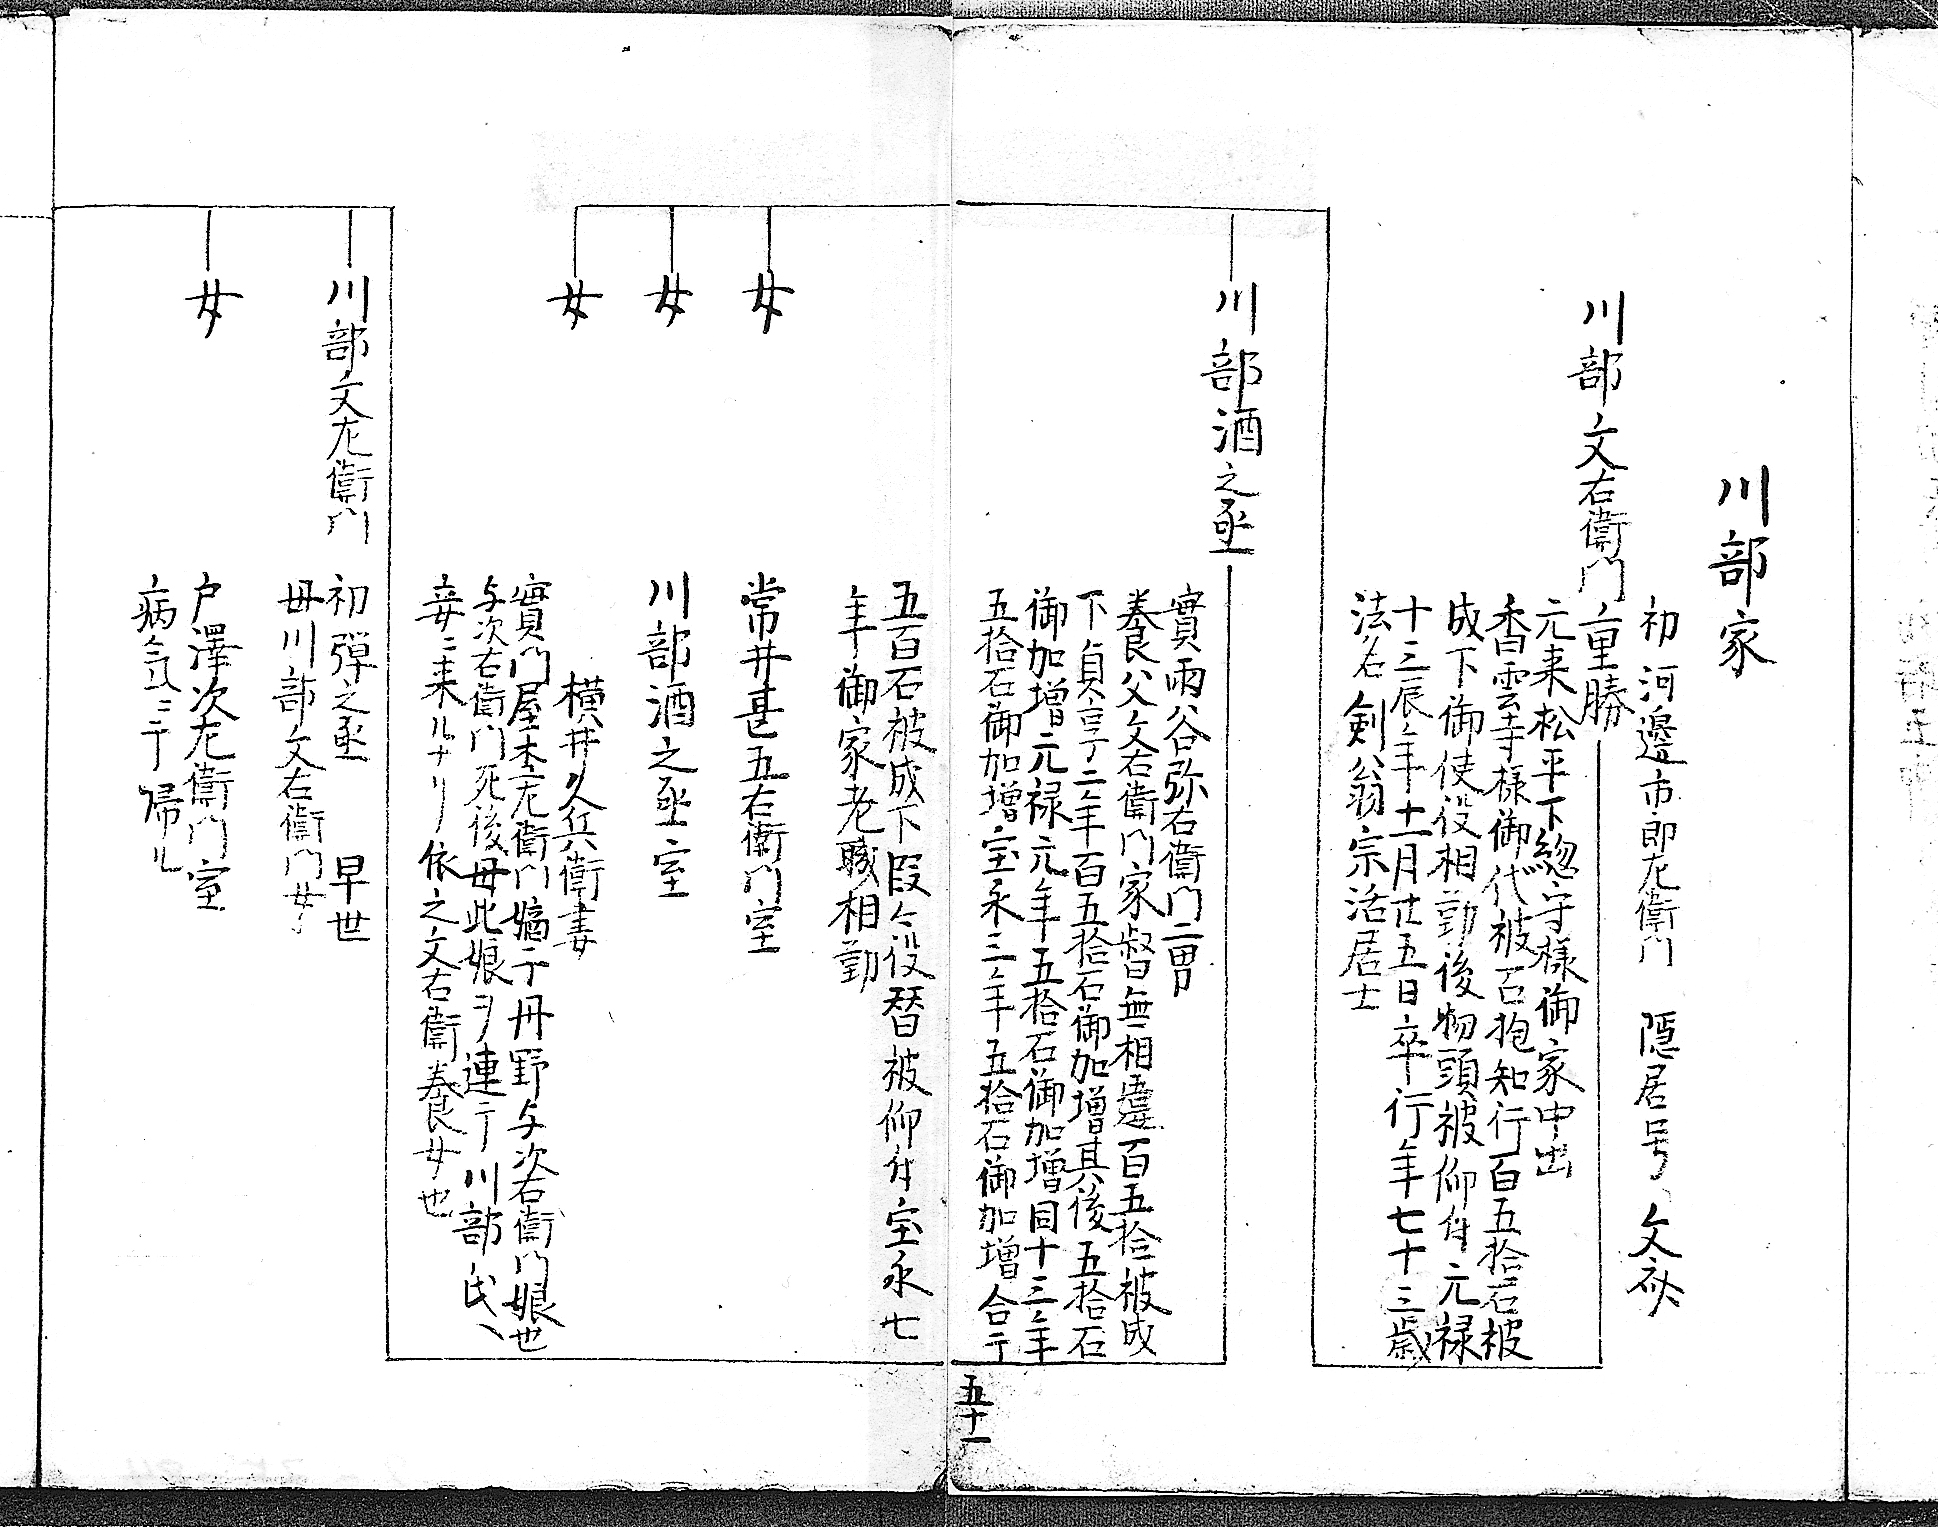 川部家
初河邊市郎左衛門　隠居号文秋
川部文右衛門重勝
元来松平下総守様御家中出
香雲寺様御代被召抱知行百五拾石被
成下御使役相勤後物頭被仰付元禄
十三辰年十一月廿五日卒行年七十三歳
法名剣翁宗活居士
川部酒之丞
實雨谷弥右衛門二男
養父文右衛門家督無相違百五拾被成
下貞享二年百五拾石御加増其後五拾石
御加増元禄元年五拾石御加増同十三年
五拾石御加増宝永三年五拾石御加増合テ
五十一
五百石被成下段々役替被仰付宝永七
年御家老職相勤
女
常井甚五右衛門室
女
川部酒之丞室
女
横井久兵衛妻
實門屋杢左衛門嫡子丹野与次右衛門娘也
与次右衛門死後母此娘ヲ連テ川部氏ヘ
妾ニ来ルナリ依之文右衛養女也
川部文左衛門
初弾之丞　早世
母川部文右衛門女
女
戸澤次左衛門室
病気ニテ帰ル